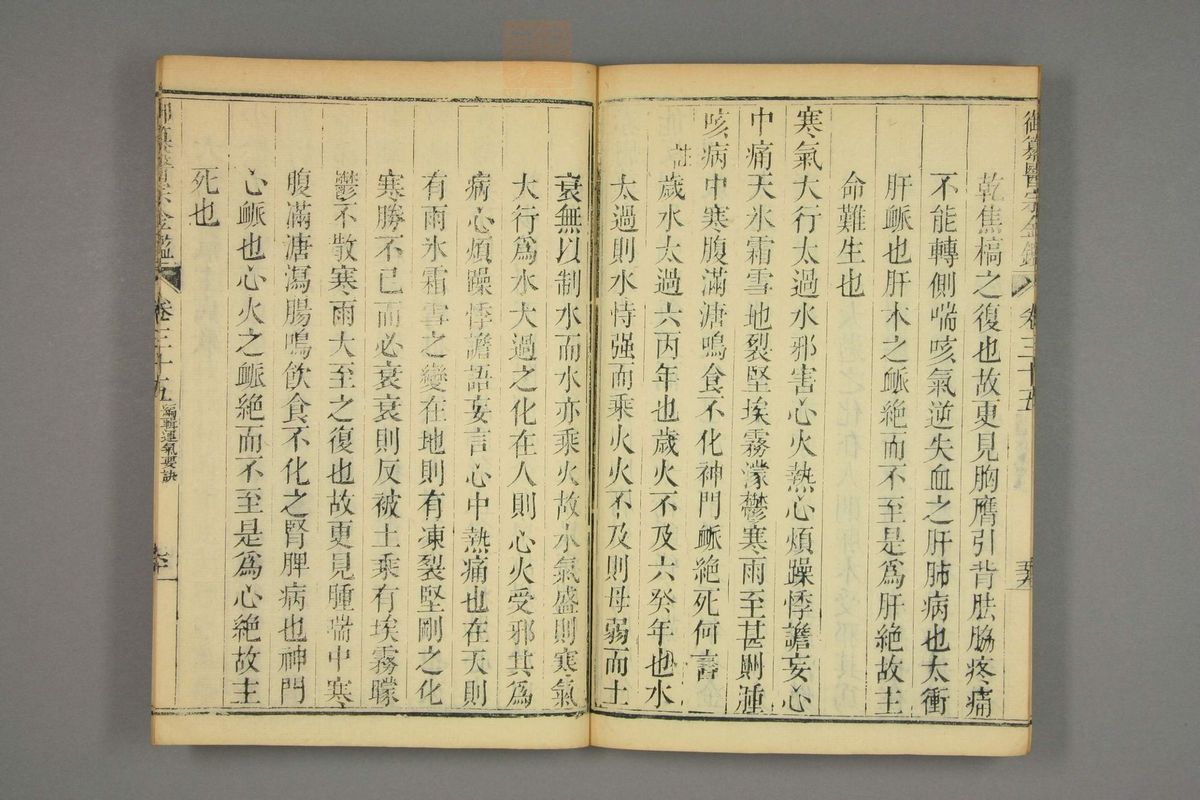 御纂醫宗金鑑 卷三十五
乾焦槁之復也故更見胸膺引背胠脇疼痛
不能轉側喘咳氣逆失血之肝肺病也太衝
肝脈也肝木之脈絶而不至是爲肝絶故主
命難生也
寒氣大行太過水邪害心火熱心煩躁悸譫妄心
中痛天氷霜雪地裂堅埃霧濛鬱寒雨至甚則腫
咳病中寒腹滿溏鳴食不化神門脈絶死何言
註歲水太過六丙年也歲火不及六癸年也水
太過則水恃强而乘火火不及則母弱而土
衰無以制水而水亦乘火故水氣盛則寒氣
大行爲水太過之化在人則心火受邪其爲
病心煩躁悸譫語妄言心中熱痛也在天則
有雨氷霜雪之變在地則有凍裂堅剛之化
寒勝不已而必衰衰則反被土乘有埃霧矇
鬱不散寒雨大至之復也故更見腫喘中寒
腹滿溏瀉腸鳴飲食不化之腎脾病也神門
心脈也心火之脈絶而不至是爲心絶故主
死也
御纂醫宗金鑑 卷三十五 編輯運氣要訣